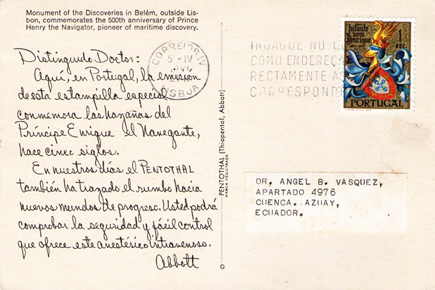 Monument of the Discoveries in Belém, outside Lis-
bon, commemorates the 500th anniversary of Prince
Henry the Navigator, pioneer of maritime discovery.
Distinguido Doctor:
Aquí, en Portugal, la emisión
de esta estampilla especial
conmemora las hazañas del
Príncipe Enrique el Navegante,
hace cinco siglos.
En nuestros días el PENTOTHAL
también ha trazado el rumbo hacia
nuevos mundos de progreso. Usted podrá
comprobar la seguridad y fácil control
que ofrece este anestésico intravenoso.
Abbott
PENTOTHAL (Thiopental, Abbott)
MARCA REGISTRADA
CORREIOS
5-IV
LISBOA
INDIQUE NO
COMO ENDEREÇO
RECTAMENTE
CORRESPOND
1
ESC.
PORTUGAL
DR. ANGEL B. VASQUEZ,
APARTADO 4976
CUENCA. AZUAY,
ECUADOR.